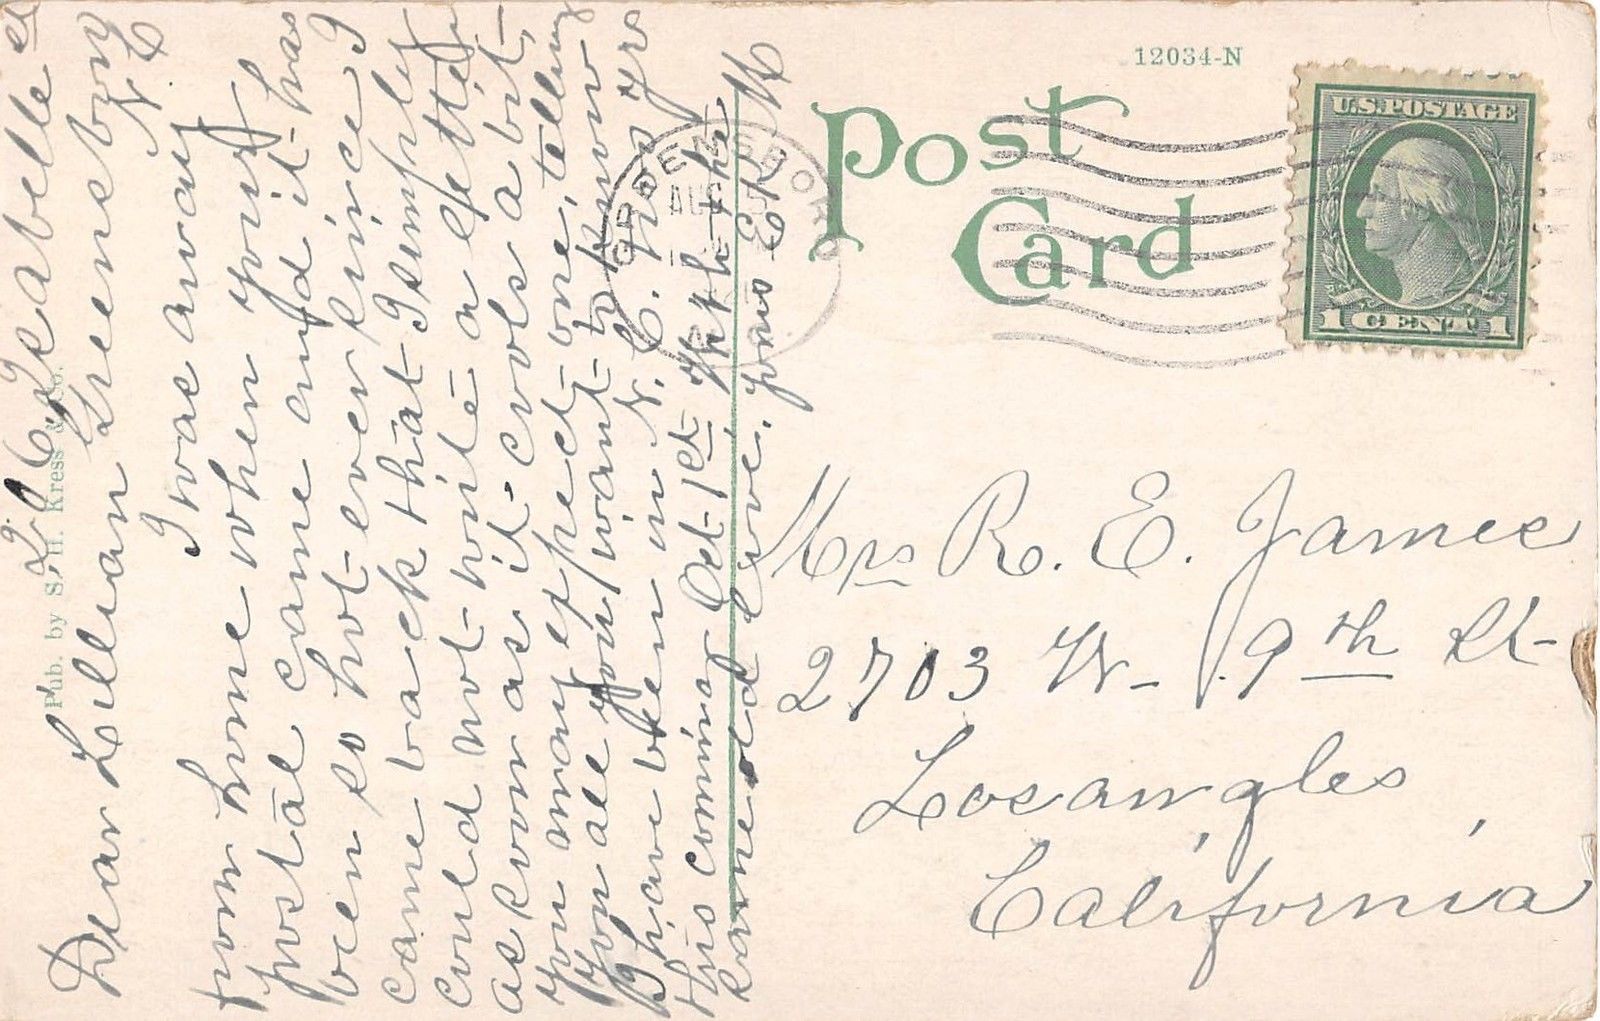 26 Isabelle St
Greensboro
N C
Dear Lillian
I was away
from home when your
postal came and it has
been so hot ever since I
came back that I simply
could not write a letter
as soon as it cools a bit
you may expect one, telling
you all you want to know
I have been in N. C. nos yrs
this coming Oct 1st With the
same old love, yours E K M
Pub. by S. H. Kress & Co.
12034-N
Post
Card
GREENSBORO
AUG
U.S. POSTAGE
1 CENT 1
Mrs R. E. James
2703 W - 9th St
Los angles,
California